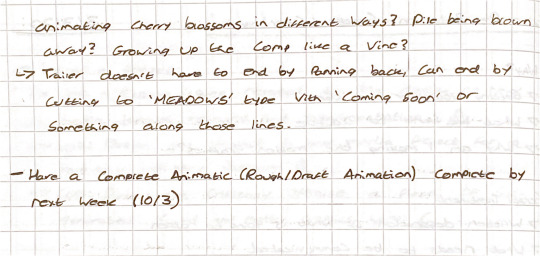 animating cherry blossoms in different ways? Pile being blown
away? Growing up the comp like a vine?
↳ Trailer doesn't have to end by panning back, can end by
cutting to 'MEADOWS' type with 'coming soon' or
something along those lines.
- Have a complete Animatic (Rough/Draft Animation) complete by
next week (10/3)